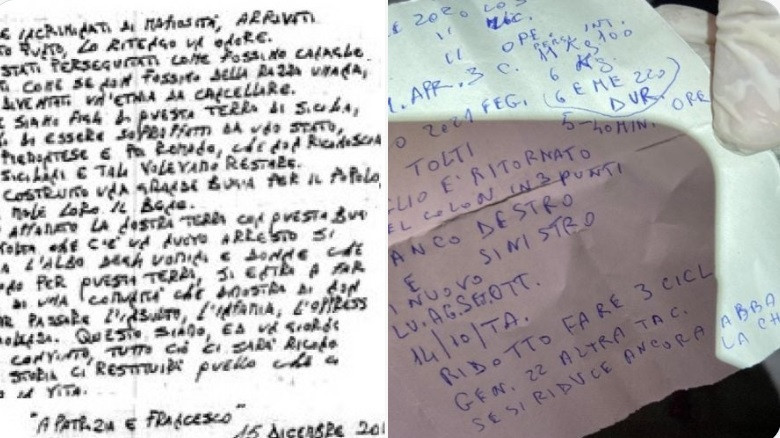 E INCRIMINATI DI MAFIOSITÀ, ARRIVATI
TO PUNTO, LO RITENGO UN ONORE.
STATI PERSEGUITATI COME FOSSIMO CANAGLIE
TI COME SE NON FOSSIMO DELLA RAZZA UMANA,
DIVENTATI UN'ETNIA DA CANCELLARE.
E SIAMO FIGLI DI QUESTA TERRA DI SICILIA,
DI ESSERE SOPRAFFATTI DA UNO STATO,
PIEMONTESE E POI ROMANO, CHE NON RICONOSCIA
SICILIANI E TALI VOLEVAMO RESTARE.
COSTRUITO UNA GRANDE BUGIA PER IL POPOLO
MALE LORO IL BENE.
AFFAMATO LA NOSTRA TERRA CON QUESTA BUG
VOLTA CHE C'È UN NUOVO ARRESTO SI
A L'ALBO DEGLI UOMINI E DONNE CHE
PER QUESTA TERRA, SI ENTRA A FAR
DI UNA COMUNITÀ CHE DIMOSTRA DI NON
PASSARE L'INSULTO, L'INFAMIA, L'OPPRESS
QUESTO SIAMO, ED UN GIORNO
CONVINTO, TUTTO CIÒ CI SARÀ RICONO
STORIA CI RESTITUIRÀ QUELLO CHE CI
LA VITA.
"A PATRIZIA E FRANCESCO"
15 DICEMBRE 201
E 2020 COLO
11 OPE. INT.
11 X 3 100
APR. 3 C. 6 X 3
2021 FEG. (6 E ME 220)
DUR. ORE
5-40 MIN.
TOLTI
GLIO E' RITORNATO
EL COLON IN 3 PUNTI
ANCO DESTRO
E SINISTRO
NUOVO
LU. AG. SE. OTT.
14/10/TA.
RIDOTTO FARE 3 CICL
GEN. 22 ALTRA TAC.
SE SI RIDUCE ANCORA ABBA
LA CH